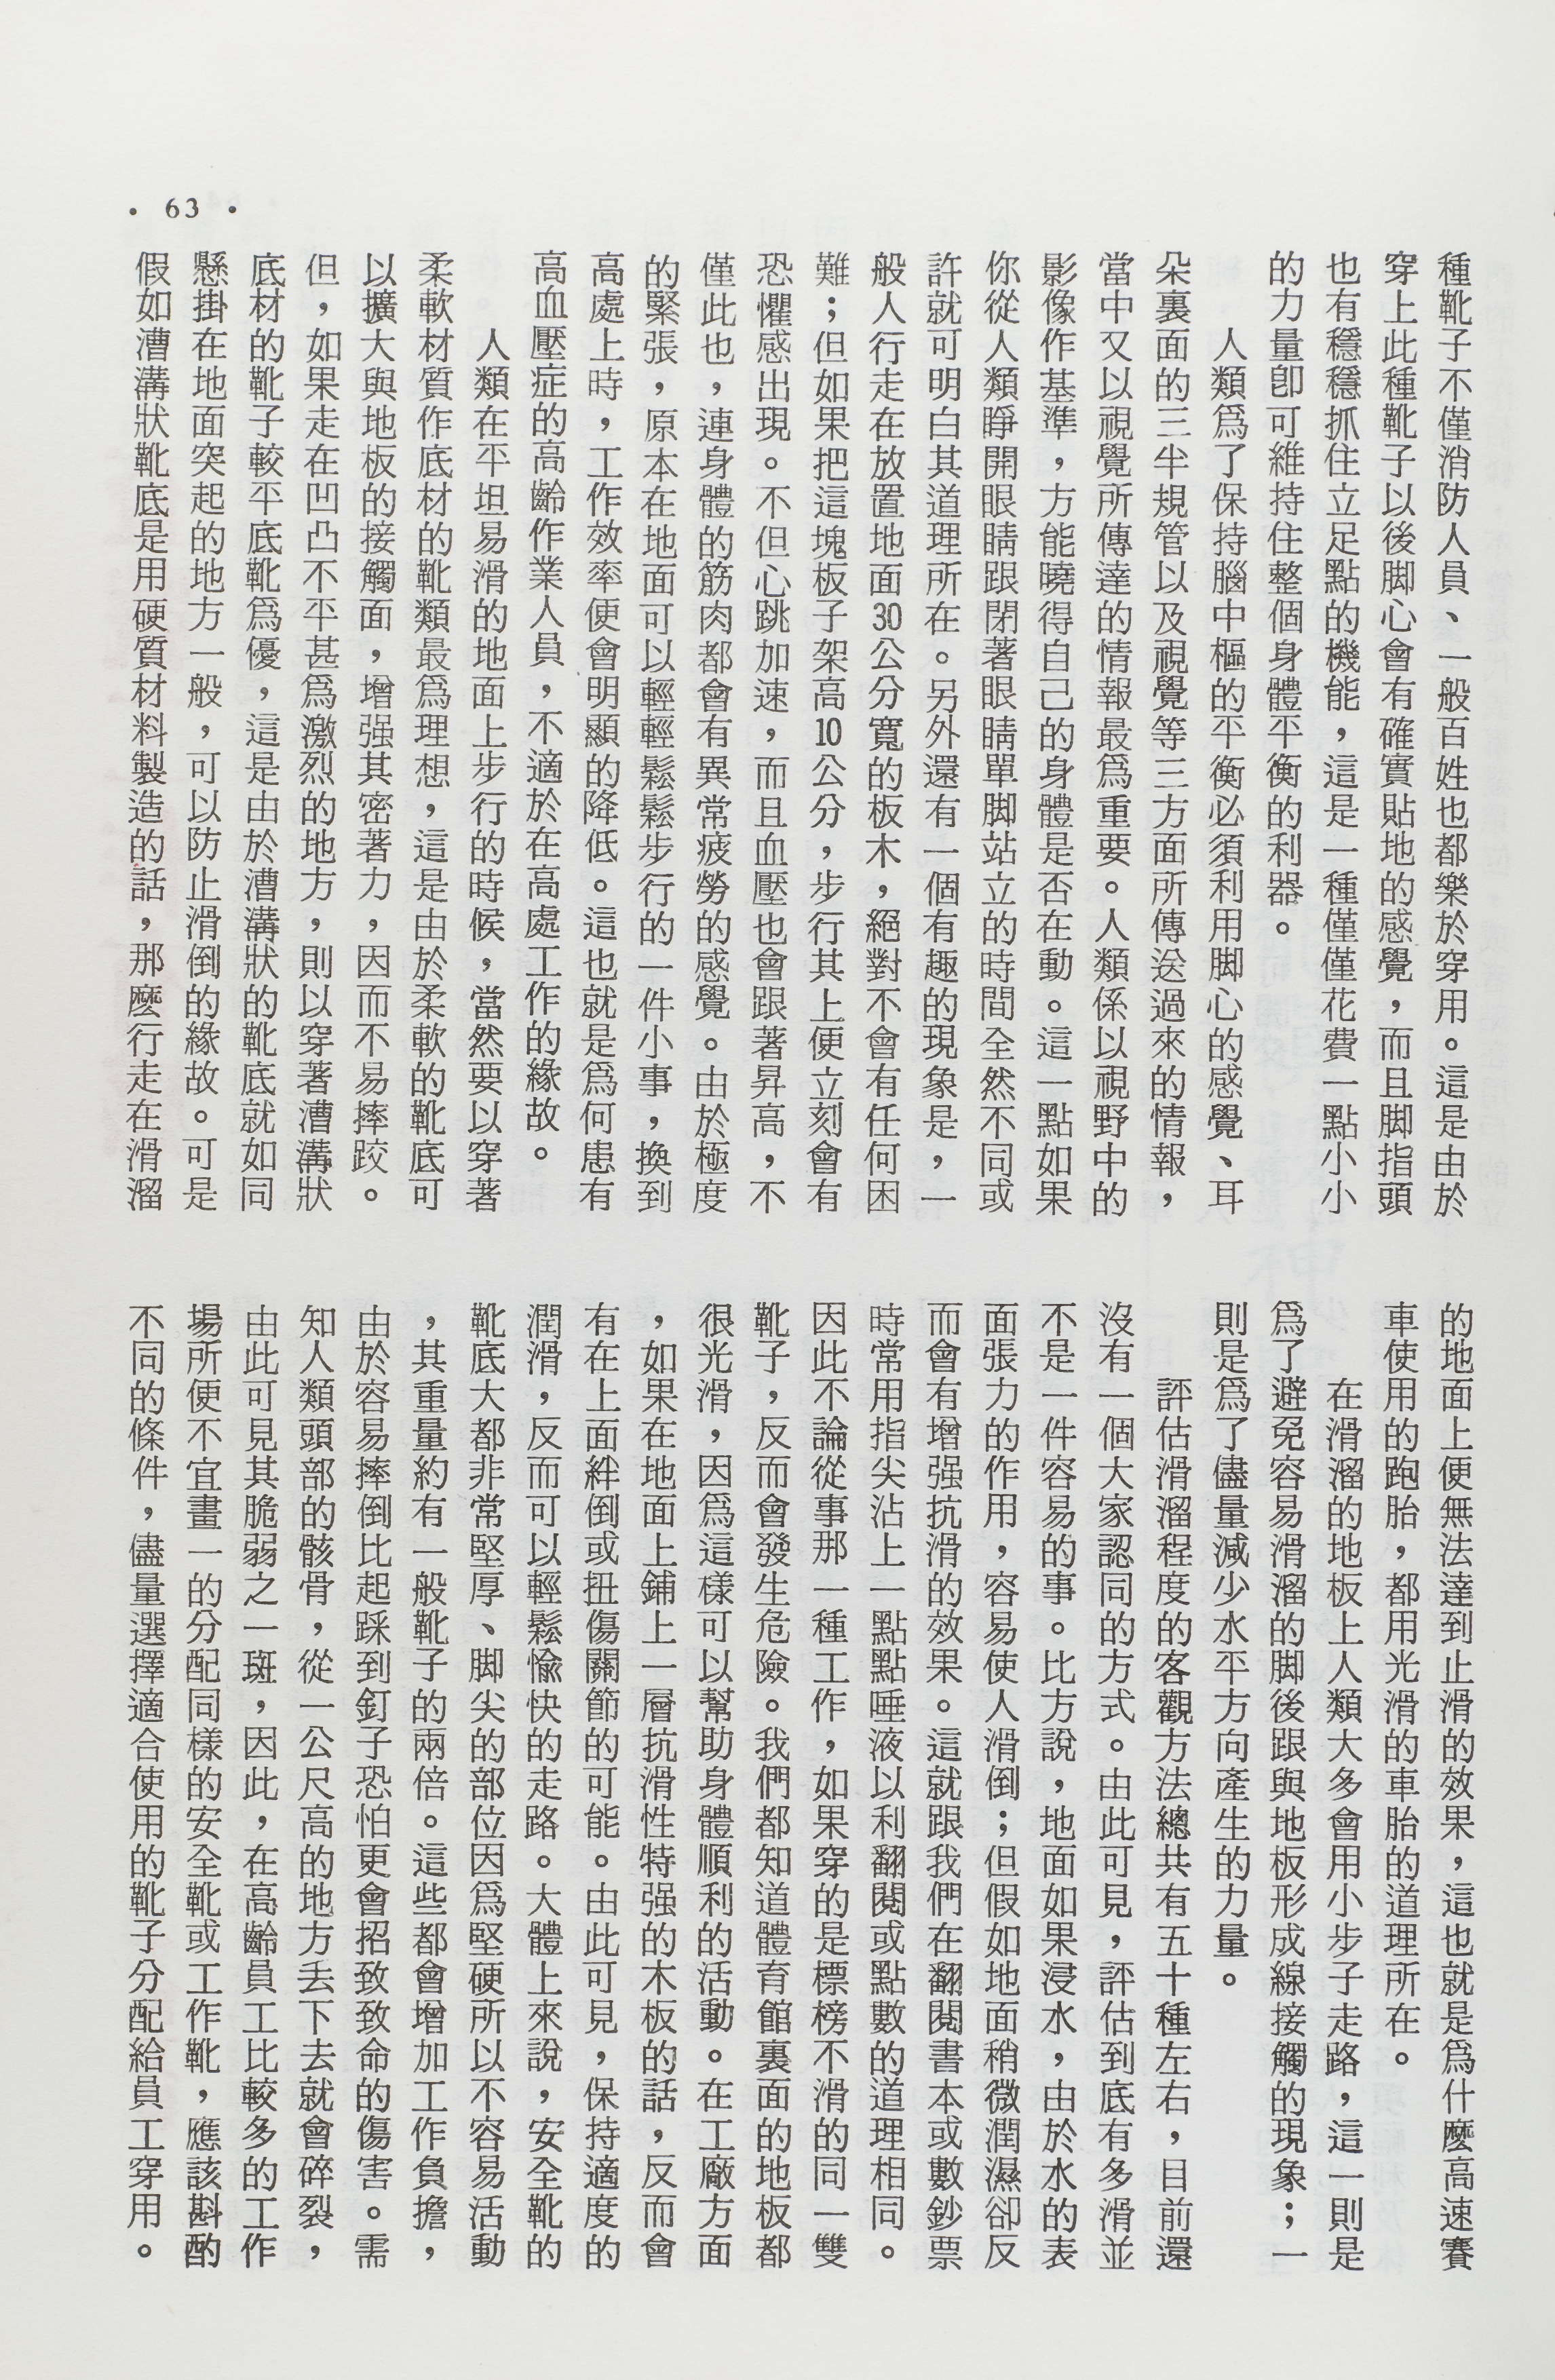 • 63 •
種靴子不僅消防人員、一般百姓也都樂於穿用。這是由於
穿上此種靴子以後脚心會有確實貼地的感覺，而且脚指頭
也有穩穩抓住立足點的機能，這是一種僅僅花費一點小小
的力量卽可維持住整個身體平衡的利器。
人類爲了保持腦中樞的平衡必須利用脚心的感覺、耳
朵裏面的三半規管以及視覺等三方面所傳送過來的情報，
當中又以視覺所傳達的情報最爲重要。人類係以視野中的
影像作基準，方能曉得自己的身體是否在動。這一點如果
你從人類睜開眼睛跟閉著眼睛單脚站立的時間全然不同或
許就可明白其道理所在。另外還有一個有趣的現象是，一
般人行走在放置地面30公分寬的板木，絕對不會有任何困
難；但如果把這塊板子架高10公分，步行其上便立刻會有
恐懼感出現。不但心跳加速，而且血壓也會跟著昇高，不
僅此也，連身體的筋肉都會有異常疲勞的感覺。由於極度
的緊張，原本在地面可以輕輕鬆鬆步行的一件小事，換到
高處上時，工作效率便會明顯的降低。這也就是爲何患有
高血壓症的高齡作業人員，不適於在高處工作的緣故。
人類在平坦易滑的地面上步行的時候，當然要以穿著
柔軟材質作底材的靴類最爲理想，這是由於柔軟的靴底可
以擴大與地板的接觸面，增强其密著力，因而不易摔跤。
但，如果走在凹凸不平甚爲激烈的地方，則以穿著漕溝狀
底材的靴子較平底靴爲優，這是由於漕溝狀的靴底就如同
懸掛在地面突起的地方一般，可以防止滑倒的緣故。可是
假如漕溝狀靴底是用硬質材料製造的話，那麼行走在滑溜
的地面上便無法達到止滑的效果，這也就是爲什麼高速賽
車使用的跑胎，都用光滑的車胎的道理所在。
在滑溜的地板上人類大多會用小步子走路，這一則是
爲了避免容易滑溜的脚後跟與地板形成線接觸的現象；一
則是爲了儘量減少水平方向產生的力量。
評估滑溜程度的客觀方法總共有五十種左右，目前還
沒有一個大家認同的方式。由此可見，評估到底有多滑並
不是一件容易的事。比方說，地面如果浸水，由於水的表
面張力的作用，容易使人滑倒；但假如地面稍微潤濕卻反
而會有增强抗滑的效果。這就跟我們在翻閱書本或數鈔票
時常用指尖沾上一點點唾液以利翻閱或點數的道理相同。
因此不論從事那一種工作，如果穿的是標榜不滑的同一雙
靴子，反而會發生危險。我們都知道體育館裏面的地板都
很光滑，因爲這樣可以幫助身體順利的活動。在工廠方面
，如果在地面上鋪上一層抗滑性特强的木板的話，反而會
有在上面絆倒或扭傷關節的可能。由此可見，保持適度的
潤滑，反而可以輕鬆愉快的走路。大體上來說，安全靴的
靴底大都非常堅厚、脚尖的部位因爲堅硬所以不容易活動
，其重量約有一般靴子的兩倍。這些都會增加工作負擔，
由於容易摔倒比起踩到釘子恐怕更會招致致命的傷害。需
知人類頭部的骸骨，從一公尺高的地方丢下去就會碎裂，
由此可見其脆弱之一斑，因此，在高齡員工比較多的工作
場所便不宜畫一的分配同樣的安全靴或工作靴，應該斟酌
不同的條件，儘量選擇適合使用的靴子分配給員工穿用。